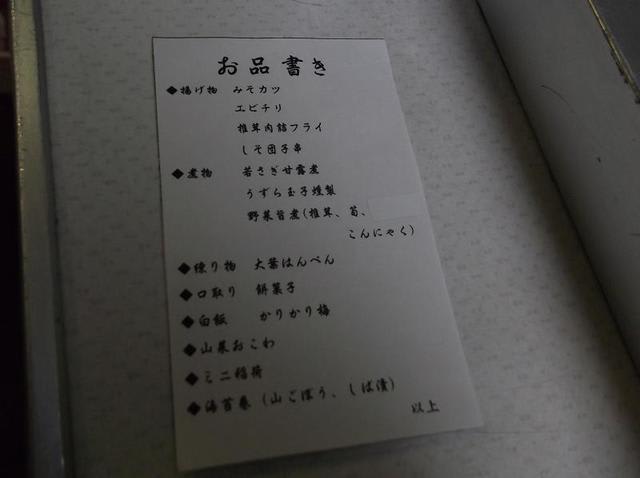 お品書き
◆揚げ物 みそカツ
エビチリ
椎茸肉詰フライ
しそ団子串
◆煮物 若さぎ甘露煮
うずら玉子燻製
野菜旨煮(椎茸、筍、
こんにゃく)
◆練り物 大葉はんぺん
◆口取り 餅菓子
◆白飯 かりかり梅
◆山菜おこわ
◆ミニ稲荷
◆海苔巻(山ごぼう、しば漬)
以上